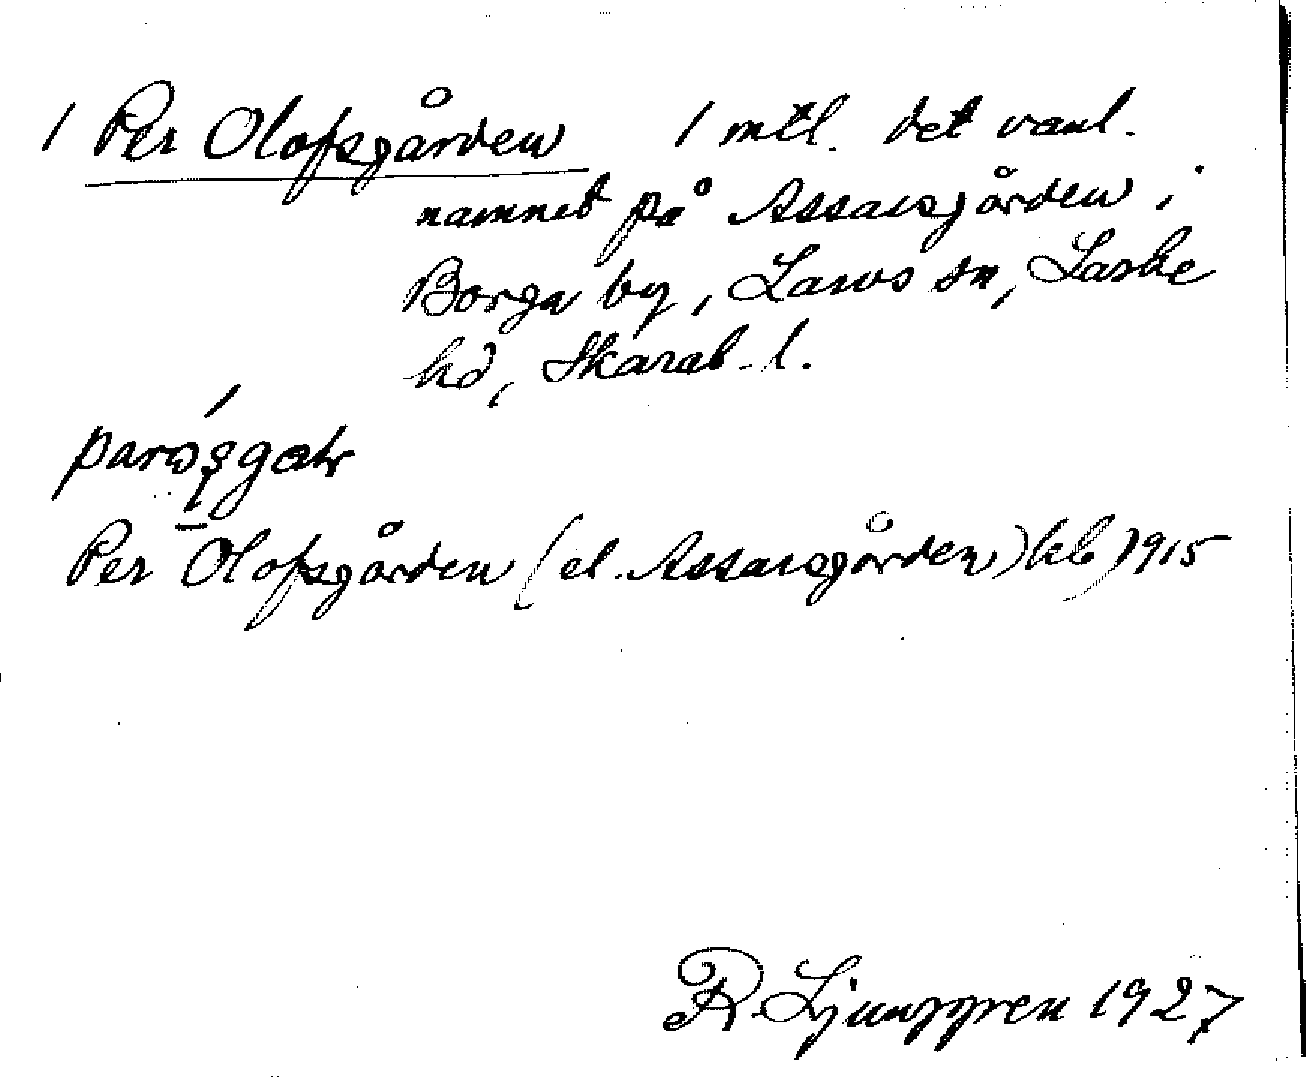 / Per Olofsgården 1 mtl. det vanl.
namnet på Assarsgården i
Borga by, Larvs sn, Laske
hd, Skarab. l.
Per Olofsgården (el. Assarsgården) kb 1915
R. Ljunggren 1927